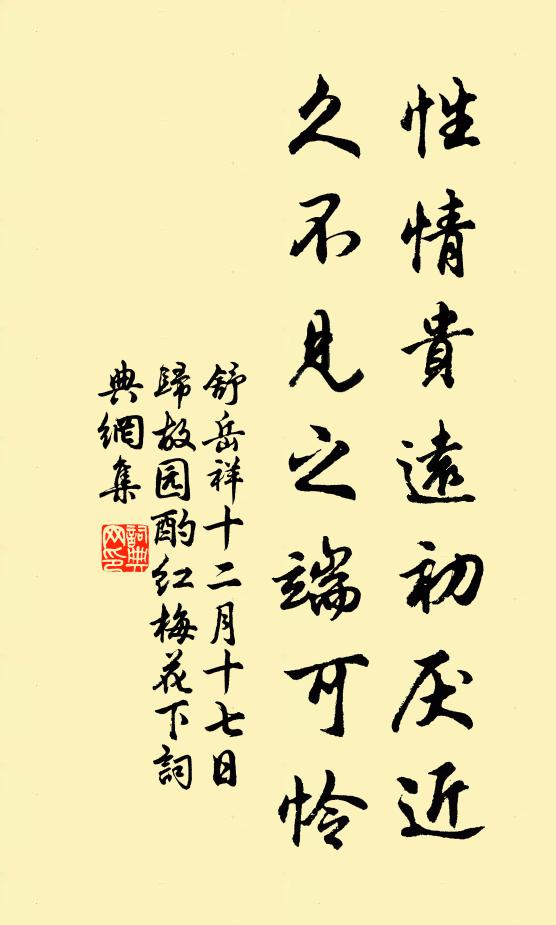 性情貴遠初厌近
久不見之端可怜
舒岳祥十二月十七日
歸故园酌红梅花下詞
典網集
詞典網印